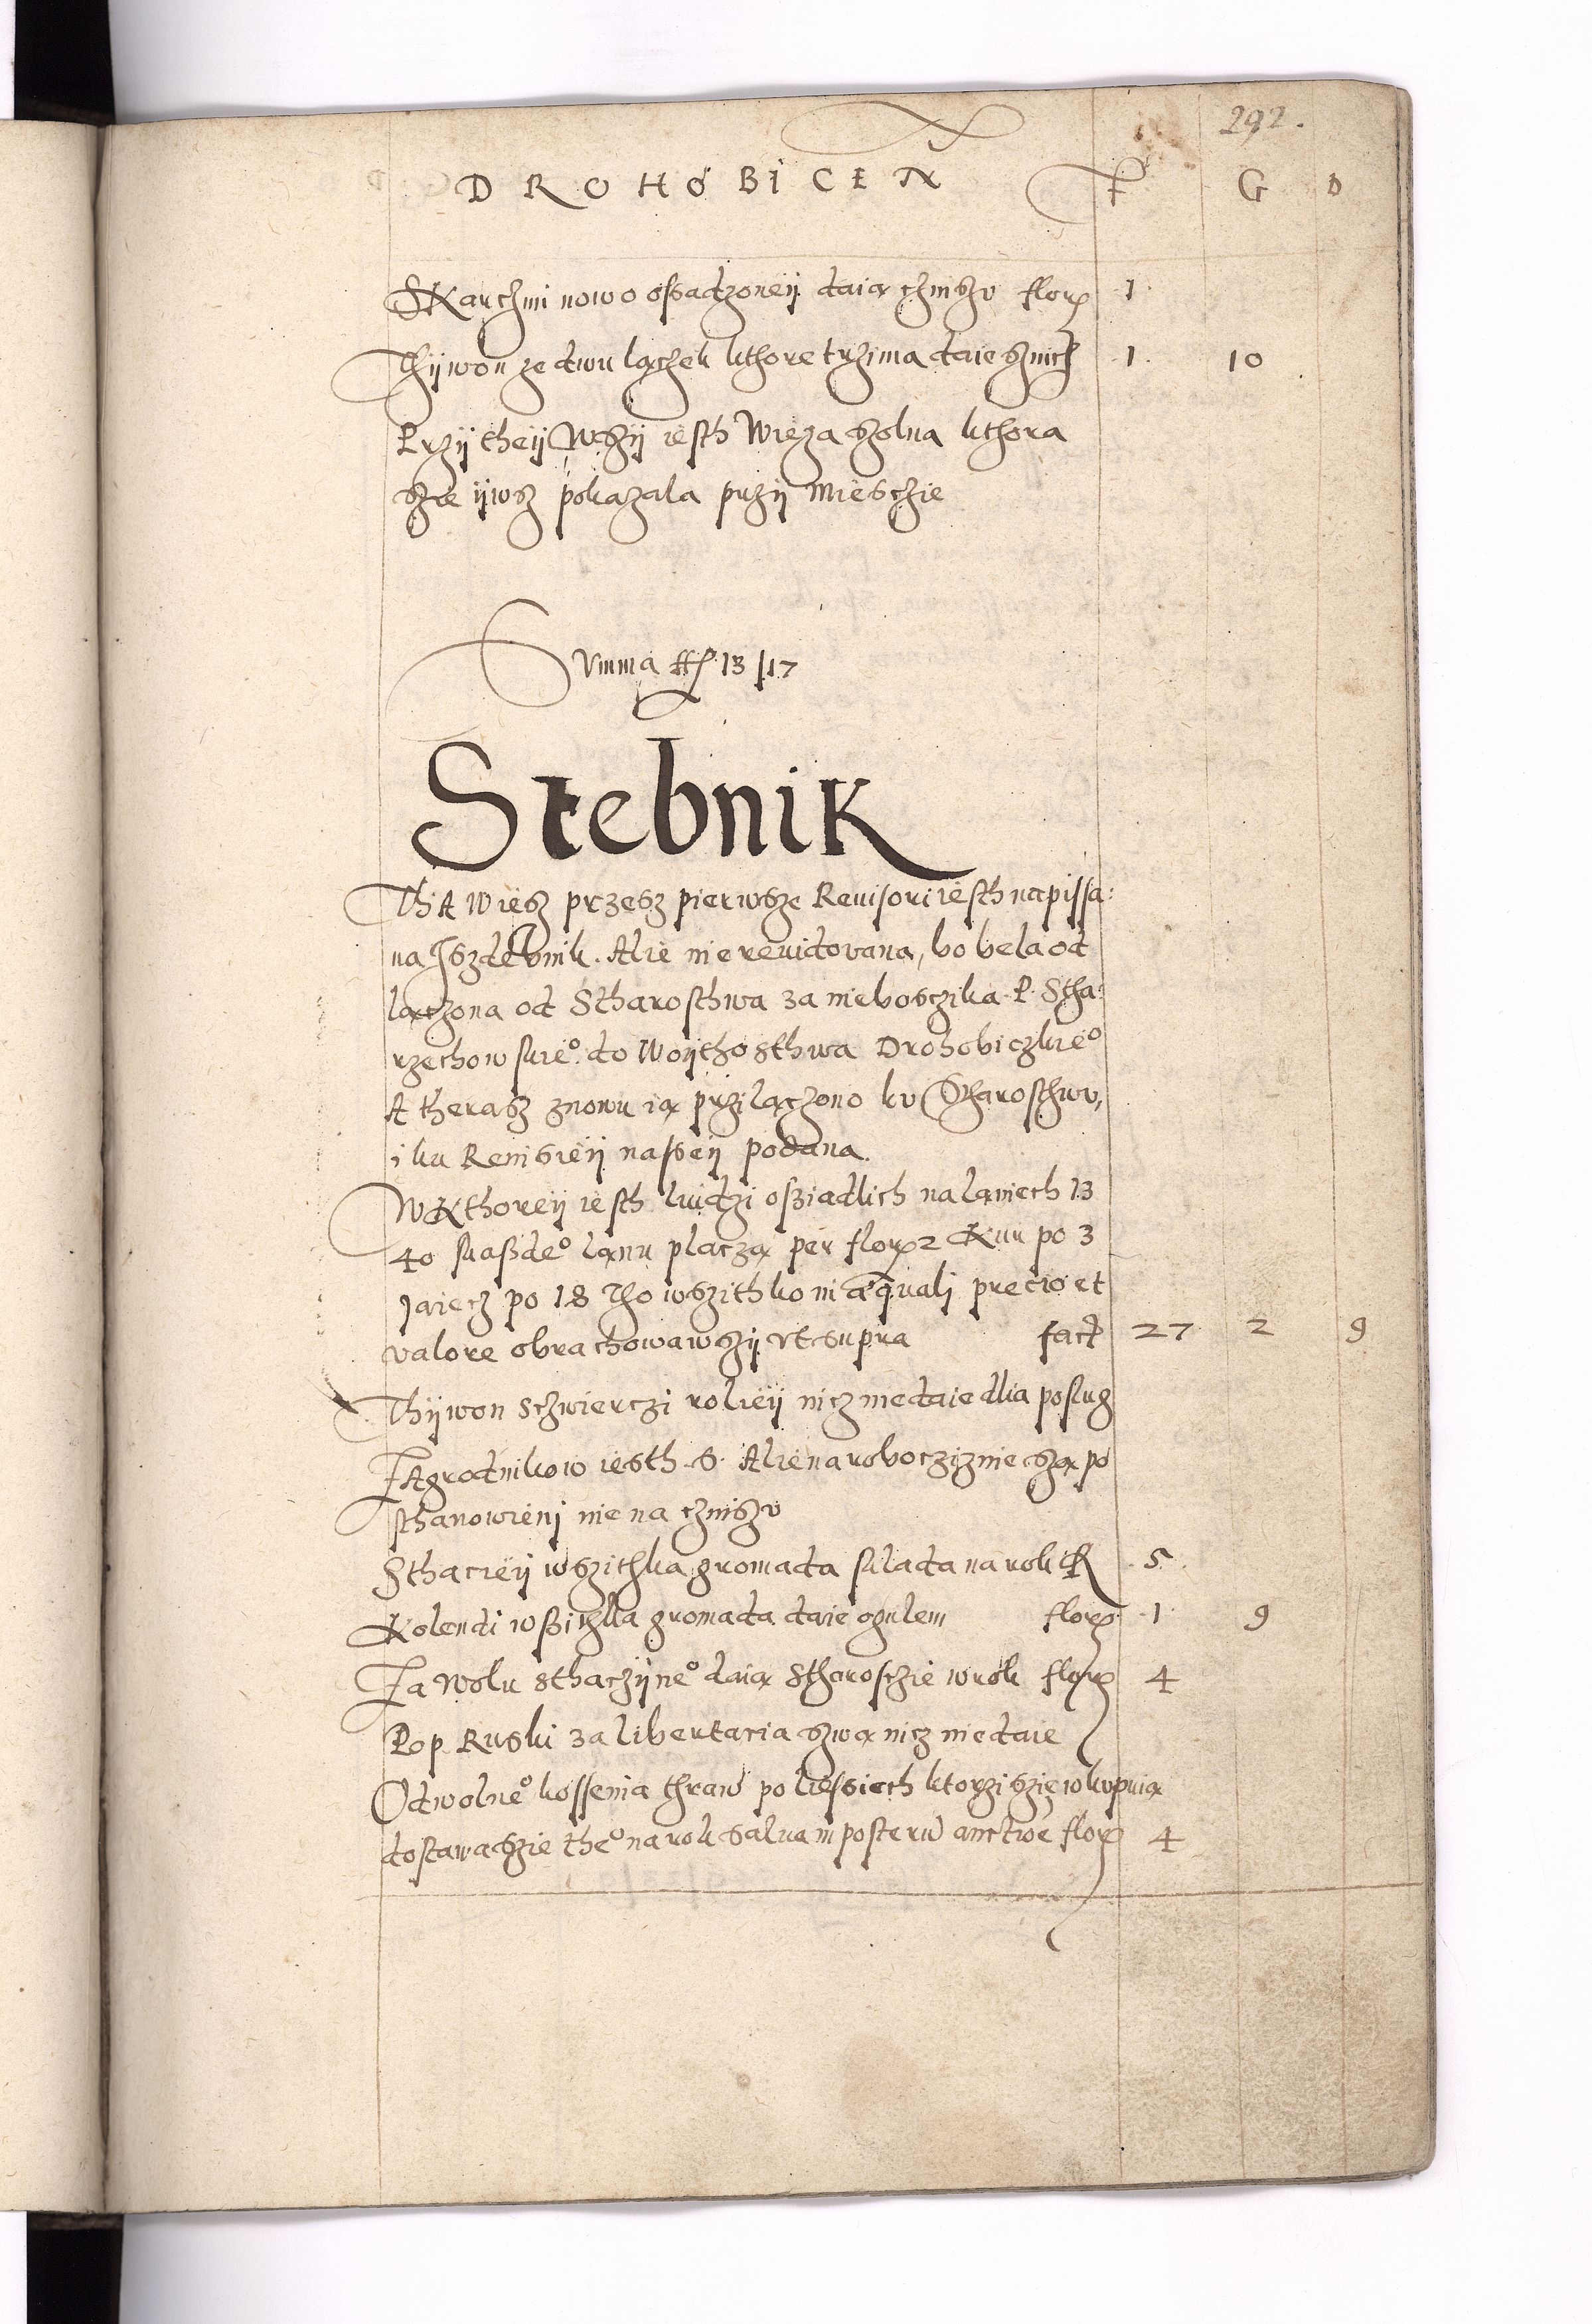 292.
DROHOBICEN F G D
SKarchmi nowo ossadzoneij daia czinszv flor 1
Thijwon ze dwu lączek kthore trzima daie sznich 1 10
Przij theij Wszij iesth Wieza szolna kthora
szie ijwsz pokazala przij Miesczie
Svmma ff 13/17
Stebnik
ThA wiesz przesz pierwsze Reuisori iesth napissa:
na Iszdebnik. Alie nie reuidovana, bo bela od
laczona od Stharosthwa za nieboszczika P. Stha:
rzechowskie° do Woijthosthwa Drohobiczkie°
A therasz znowu ia przilaczono kv Stharosthwv,
i ku Reuisieij nasseij podana.
WKthoreij iesth ludzi osziadlich na laniech 13
40 kaszde° lanu placza per flor 2 Kur po 3
Jaiecz po 18 Tho wszithko in aequali precio et
valore obrachowawszij vt supra fact 27 2 9
Thijwon sczwierczi rolieij nicz nie daie dlia poslug
ZAgrodnikow iesth .6. Alie na robocziznie sza po
sthanowieni nie na czinszv
Sthacieij wszithka gromada sklada na rok 5
Kolendi wszithka gromada daie ogulem flor 1 9
Za Wolu sthaczijne° daia Stharosczie w rok flor 4
Pop Ruski za libertacia szwa nicz nie daie
Od wolne° kossenia thraw po liessiech ktorzi szie wkupuia
dostawa szie the° na rok salua in posterum auctione flor 4